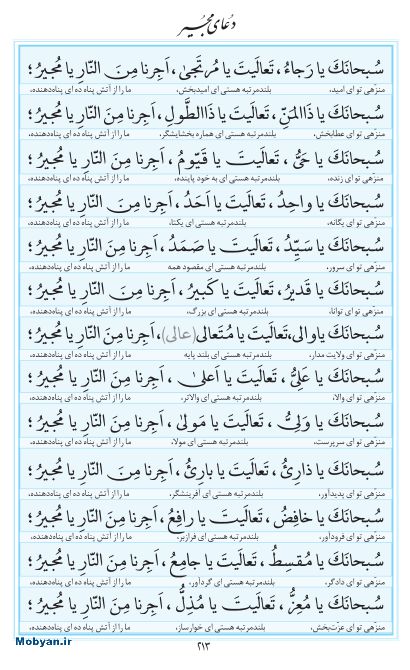 دعای مجیر
سُبحانَکَ یا رَجاءُ، تَعالَیتَ یا مُرتَجیٰ، اَجِرنا مِنَ النّارِ یا مُجیرُ؛
منزّهی تو ای امید، بلندمرتبه هستی ای امیدبخش، ما را از آتش پناه ده ای پناه‌دهنده،
سُبحانَکَ یا ذَاالمَنِّ، تَعالَیتَ یا ذَاالطَّولِ، اَجِرنا مِنَ النّارِ یا مُجیرُ؛
منزّهی تو ای عطابخش، بلندمرتبه هستی ای هماره بخشایشگر، ما را از آتش پناه ده ای پناه‌دهنده،
سُبحانَکَ یا حَیُّ، تَعالَیتَ یا قَیّومُ، اَجِرنا مِنَ النّارِ یا مُجیرُ؛
منزّهی تو ای زنده، بلندمرتبه هستی ای به خود پاینده، ما را از آتش پناه ده ای پناه‌دهنده،
سُبحانَکَ یا واحِدُ، تَعالَیتَ یا اَحَدُ، اَجِرنا مِنَ النّارِ یا مُجیرُ؛
منزّهی تو ای یگانه، بلندمرتبه هستی ای یکتا، ما را از آتش پناه ده ای پناه‌دهنده،
سُبحانَکَ یا سَیِّدُ، تَعالَیتَ یا صَمَدُ، اَجِرنا مِنَ النّارِ یا مُجیرُ؛
منزّهی تو ای سرور، بلندمرتبه هستی ای مقصود همه ما را از آتش پناه ده ای پناه‌دهنده،
سُبحانَکَ یا قَدیرُ، تَعالَیتَ یا کَبیرُ، اَجِرنا مِنَ النّارِ یا مُجیرُ؛
منزّهی تو ای توانا، بلندمرتبه هستی ای بزرگ، ما را از آتش پناه ده ای پناه‌دهنده،
سُبحانَکَ یا والی، تَعالَیتَ یا مُتَعالی (عالی)، اَجِرنا مِنَ النّارِ یا مُجیرُ؛
منزّهی تو ای ولایت مدار، بلندمرتبه هستی ای بلند پایه ما را از آتش پناه ده ای پناه‌دهنده،
سُبحانَکَ یا عَلِیُّ، تَعالَیتَ یا اَعلیٰ، اَجِرنا مِنَ النّارِ یا مُجیرُ؛
منزّهی تو ای والا، بلندمرتبه هستی ای والاتر، ما را از آتش پناه ده ای پناه‌دهنده،
سُبحانَکَ یا وَلِیُّ، تَعالَیتَ یا مَولیٰ، اَجِرنا مِنَ النّارِ یا مُجیرُ؛
منزّهی تو ای سرپرست، بلندمرتبه هستی ای مولا، ما را از آتش پناه ده ای پناه‌دهنده،
سُبحانَکَ یا ذارِئُ، تَعالَیتَ یا بارِئُ، اَجِرنا مِنَ النّارِ یا مُجیرُ؛
منزّهی تو ای پدیدآور، بلندمرتبه هستی ای آفرینشگر، ما را از آتش پناه ده ای پناه‌دهنده،
سُبحانَکَ یا خافِضُ، تَعالَیتَ یا رافِعُ، اَجِرنا مِنَ النّارِ یا مُجیرُ؛
منزّهی تو ای فرودآور، بلندمرتبه هستی ای فرازبر، ما را از آتش پناه ده ای پناه‌دهنده،
سُبحانَکَ یا مُقسِطُ، تَعالَیتَ یا جامِعُ، اَجِرنا مِنَ النّارِ یا مُجیرُ؛
منزّهی تو ای دادگر، بلندمرتبه هستی ای گردآور، ما را از آتش پناه ده ای پناه‌دهنده،
سُبحانَکَ یا مُعِزُّ، تَعالَیتَ یا مُذِلُّ، اَجِرنا مِنَ النّارِ یا مُجیرُ؛
منزّهی تو ای عزّت‌بخش، بلندمرتبه هستی ای خوارساز، ما را از آتش پناه ده ای پناه‌دهنده،
۲۱۳
Mobyan.ir